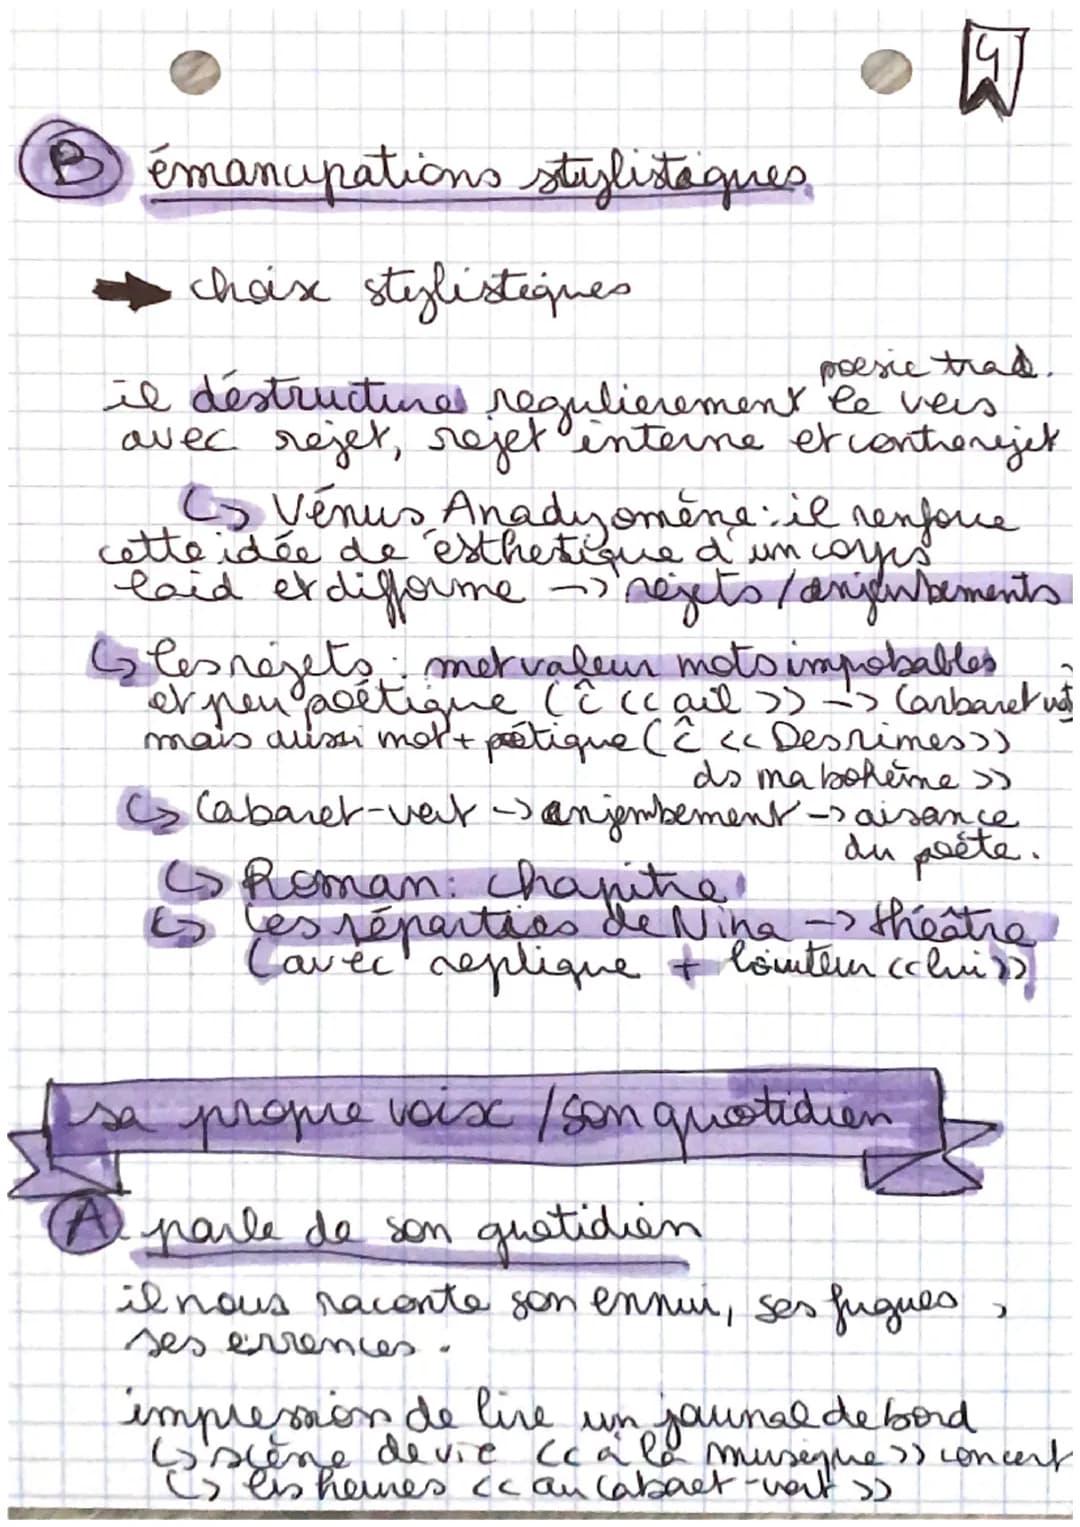 4
B émancipations stylistiques
➡ choix stylistiques
poesie trad.
il déstructure regulierement le vers
avec rejet, rejet interne et contrerejet
↳ Vénus Anadyomène : il renforce
cette idée de esthetique d'un corps
laid et difforme -> rejets / enjambements
↳ les rejets : met valeur mots improbables
et peu poétique (ĉ << ail >> -> Carbaret vert
mais aussi mot + poétique (ĉ << Des rimes >>
ds ma bohème >>
↳ Cabaret-vert -> enjembement -> aisance
du poète.
↳ Roman : chapitre
↳ les réparties de Nina -> théâtre
(avec replique + locuteur << lui >>)
sa propre voix / son quotidien
A parle de son quotidien
il nous raconte son ennui, ses fugues,
ses errences.
impression de lire un journal de bord
↳ scène de vie << à la musique >> concert
↳ les heures << au Cabaet-vert >>